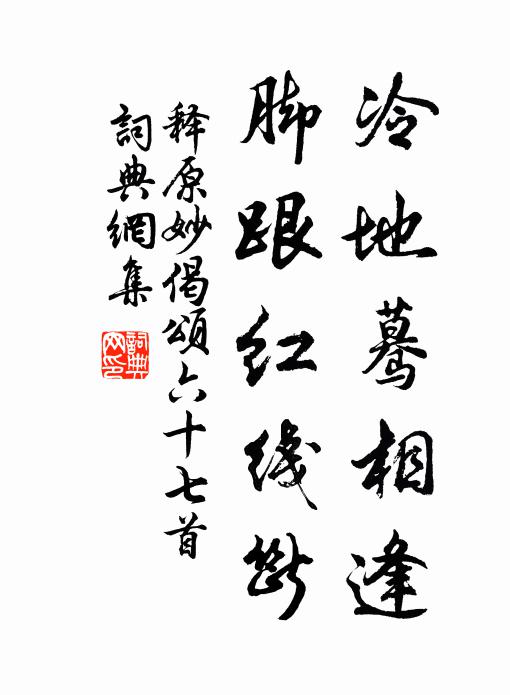 冷地驀相逢
脚跟红线断
释原妙偈頌六十七首
詞典網集
詞典网印